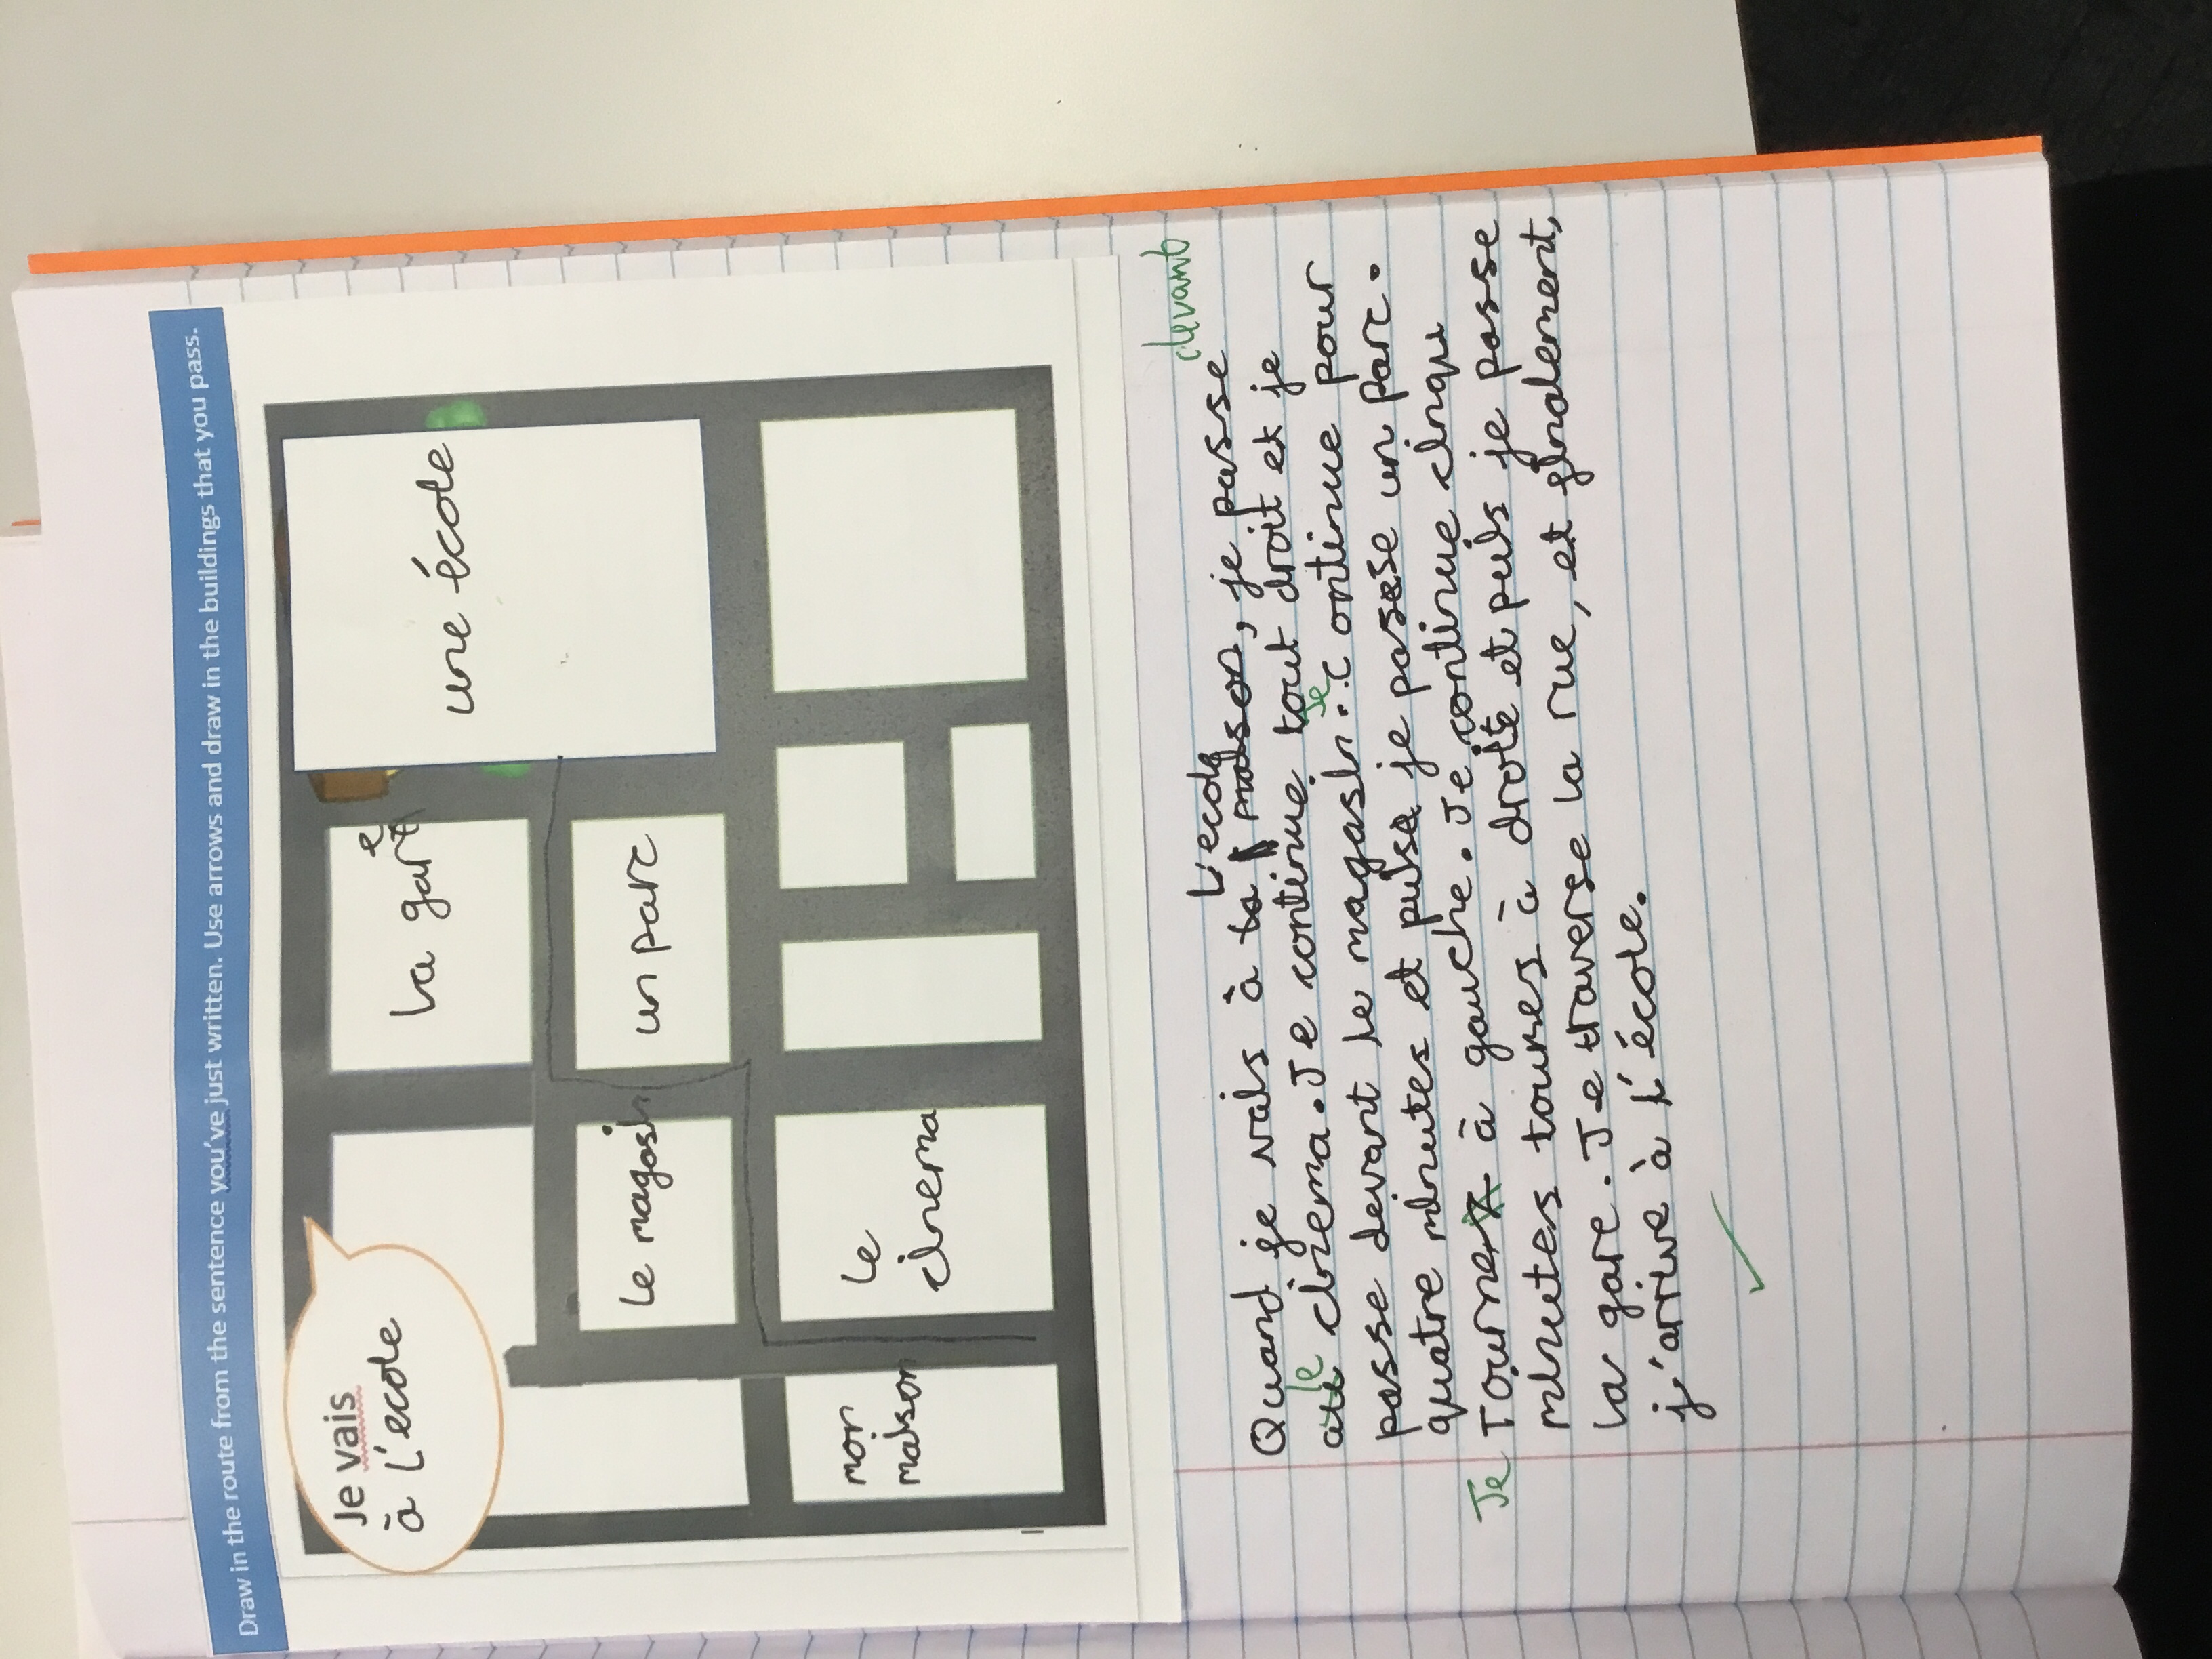 Draw in the route from the sentence you've just written. Use arrows and draw in the buildings that you pass.
Je vais
à l'ecole
la gare
une école
le magasin
un parc
mon
maison
le
cinema
devant
L'ecole
Quand je vais à la maison, je passe
au le cinema. Je continue tout droit et je
Je
passe devant le magasin. continue pour
quatre minutes et puise je passe un parc.
Je Tourner à gauche. Je continue cinqu
minutes tournes à droite et puis je passe
la gare. Je traverse la rue, et finalement,
j'arrive à l'école.